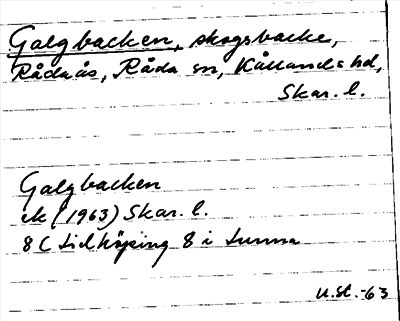 Galgbacken, skogsbacke,
Rådaås, Råda sn, Kållands hd,
Skar. l.
Galgbacken
ek (1963) Skar. l.
8 C Lidköping 8 i
U.St. -63